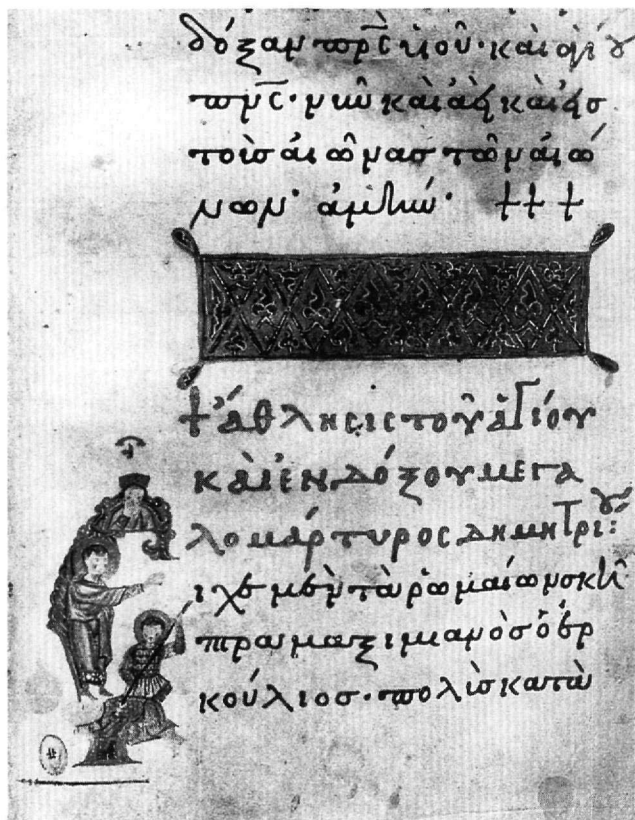 δόξαν πρ̅ς̅ υἱοῦ· καὶ ἁγίου
πν̅ς̅· νῦν καὶ ἀεὶ καὶ εἰσ
τοὺσ αἰῶνασ τῶν αἰώ
νων· ἀμήν· +++
+ ἄθλησις τοῦ ἁγίου
καὶ ἐνδόξου μεγα
λομάρτυρος δημητρίου:
ιχε μὲν τὰ ῥωμαίων σκῆ
πτρα μαξιμιανὸσ ὁ ἑρ
κούλιοσ· πολὺσ κατὰ